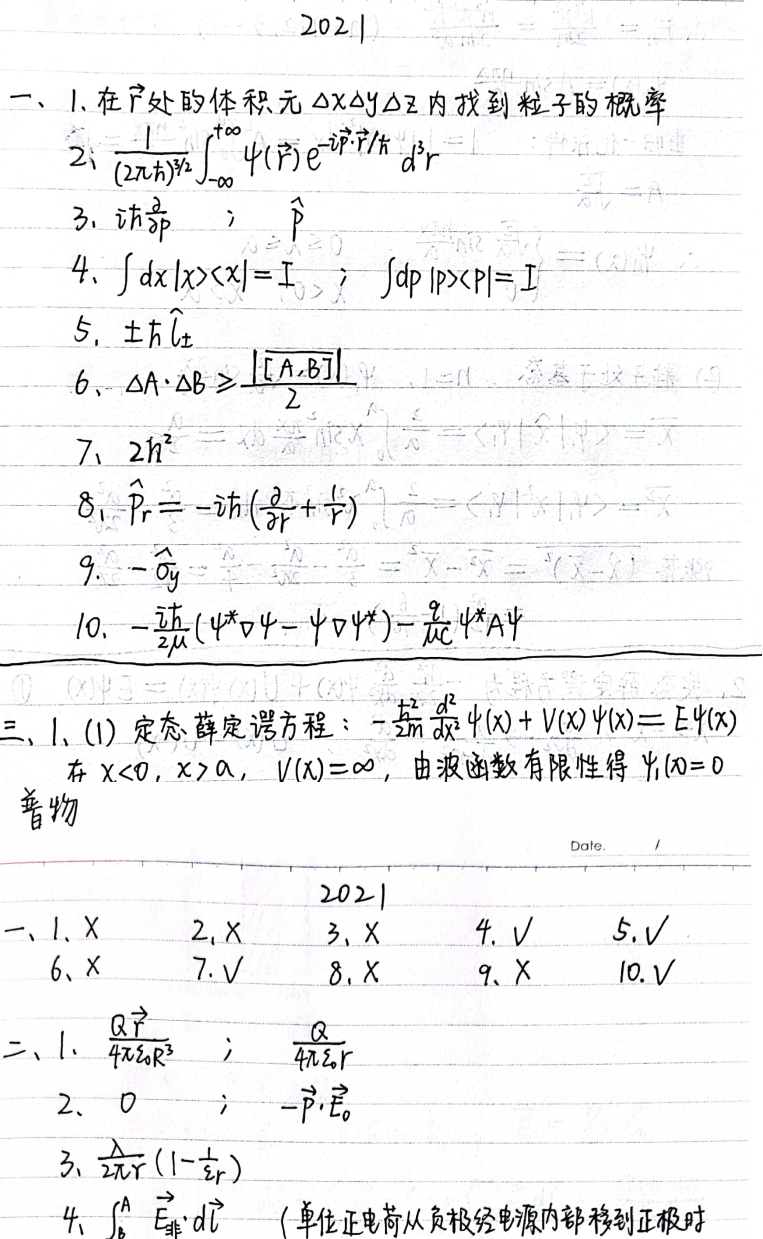 2021
一、1. 在 r⃗ 处的体积元 ΔxΔyΔz 内找到粒子的概率
2、 1/(2πħ)^{3/2} ∫_{-∞}^{+∞} ψ(r⃗) e^{-ip⃗·r⃗/ħ} d³r
3、 iħ ∂/∂p ; p̂
4、 ∫dx|x><x| = I ; ∫dp|p><p| = I
5、 ±ħ l̂±
6、 ΔA·ΔB ≥ |\overline{[A,B]}|/2
7、 2ħ²
8、 P̂r = -iħ(∂/∂r + 1/r)
9. -σ̂y
10. -iħ/2μ (ψ*∇ψ - ψ∇ψ*) - q/μc ψ*Aψ
三、1、(1) 定态薛定谔方程: -ħ²/2m d²/dx² ψ(x) + V(x)ψ(x) = Eψ(x)
在 x<0, x>a, V(x)=∞, 由波函数有限性得 ψ₁(x)=0
普物
Date. /
2021
一、1. X 2、X 3、X 4. √ 5. √
6、X 7. √ 8. X 9、X 10. √
二、1. Qr⃗/4πε₀R³ ; Q/4πε₀r
2、 0 ; -p⃗·E⃗₀
3、 λ/2πr (1 - 1/εr)
4、 ∫_B^A E⃗非·dl⃗ (单位正电荷从负极经电源内部移到正极时